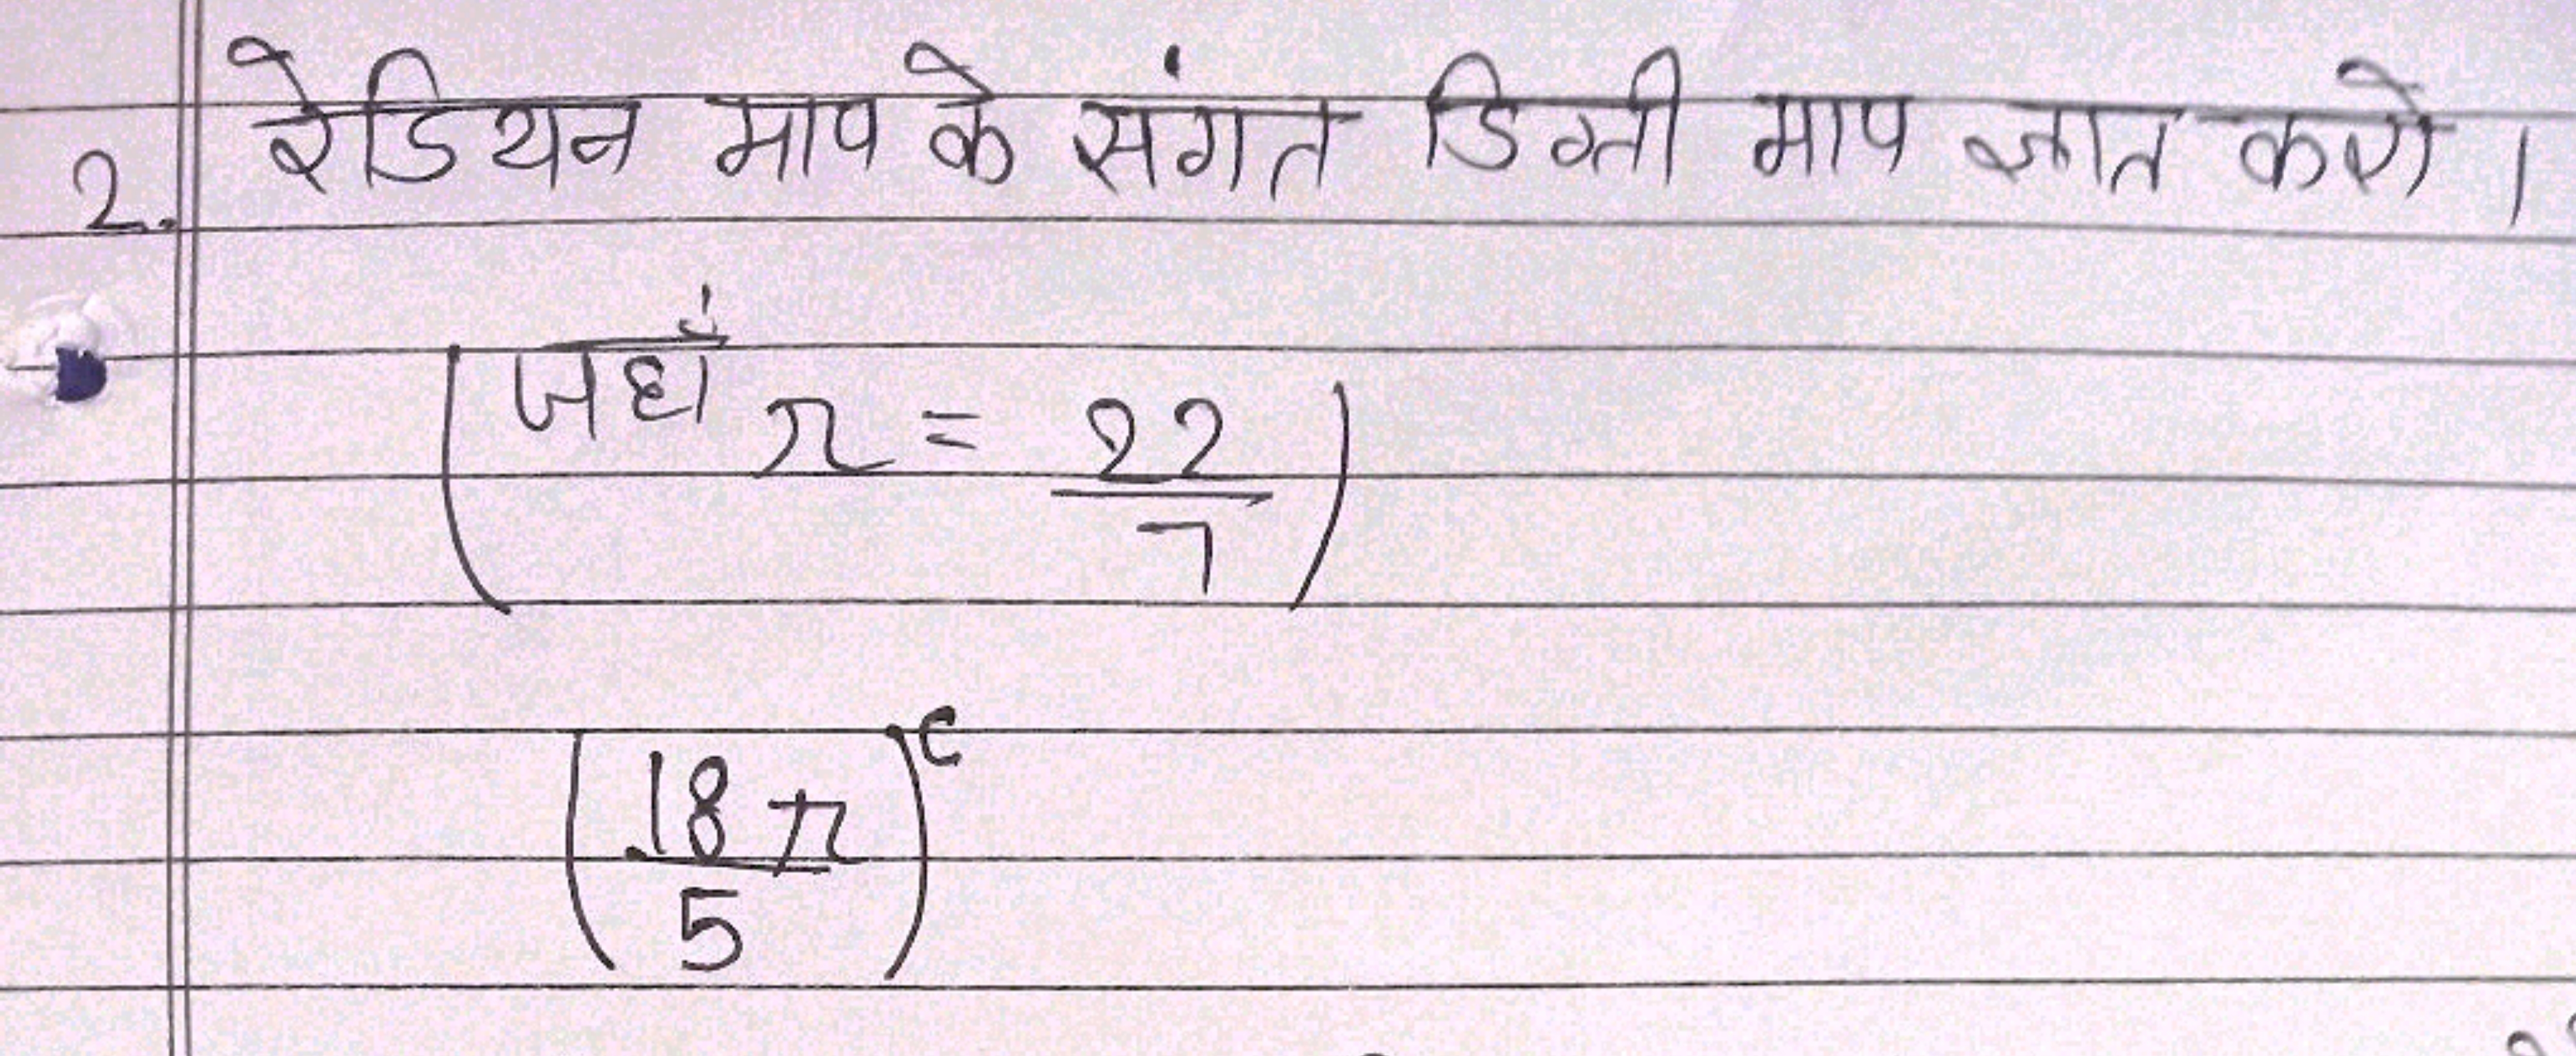 2. रेडियन माप के संगत डिग्री माप ज्ञात करो ।
(जहाँ π = 22/7)
(18π/5)^c